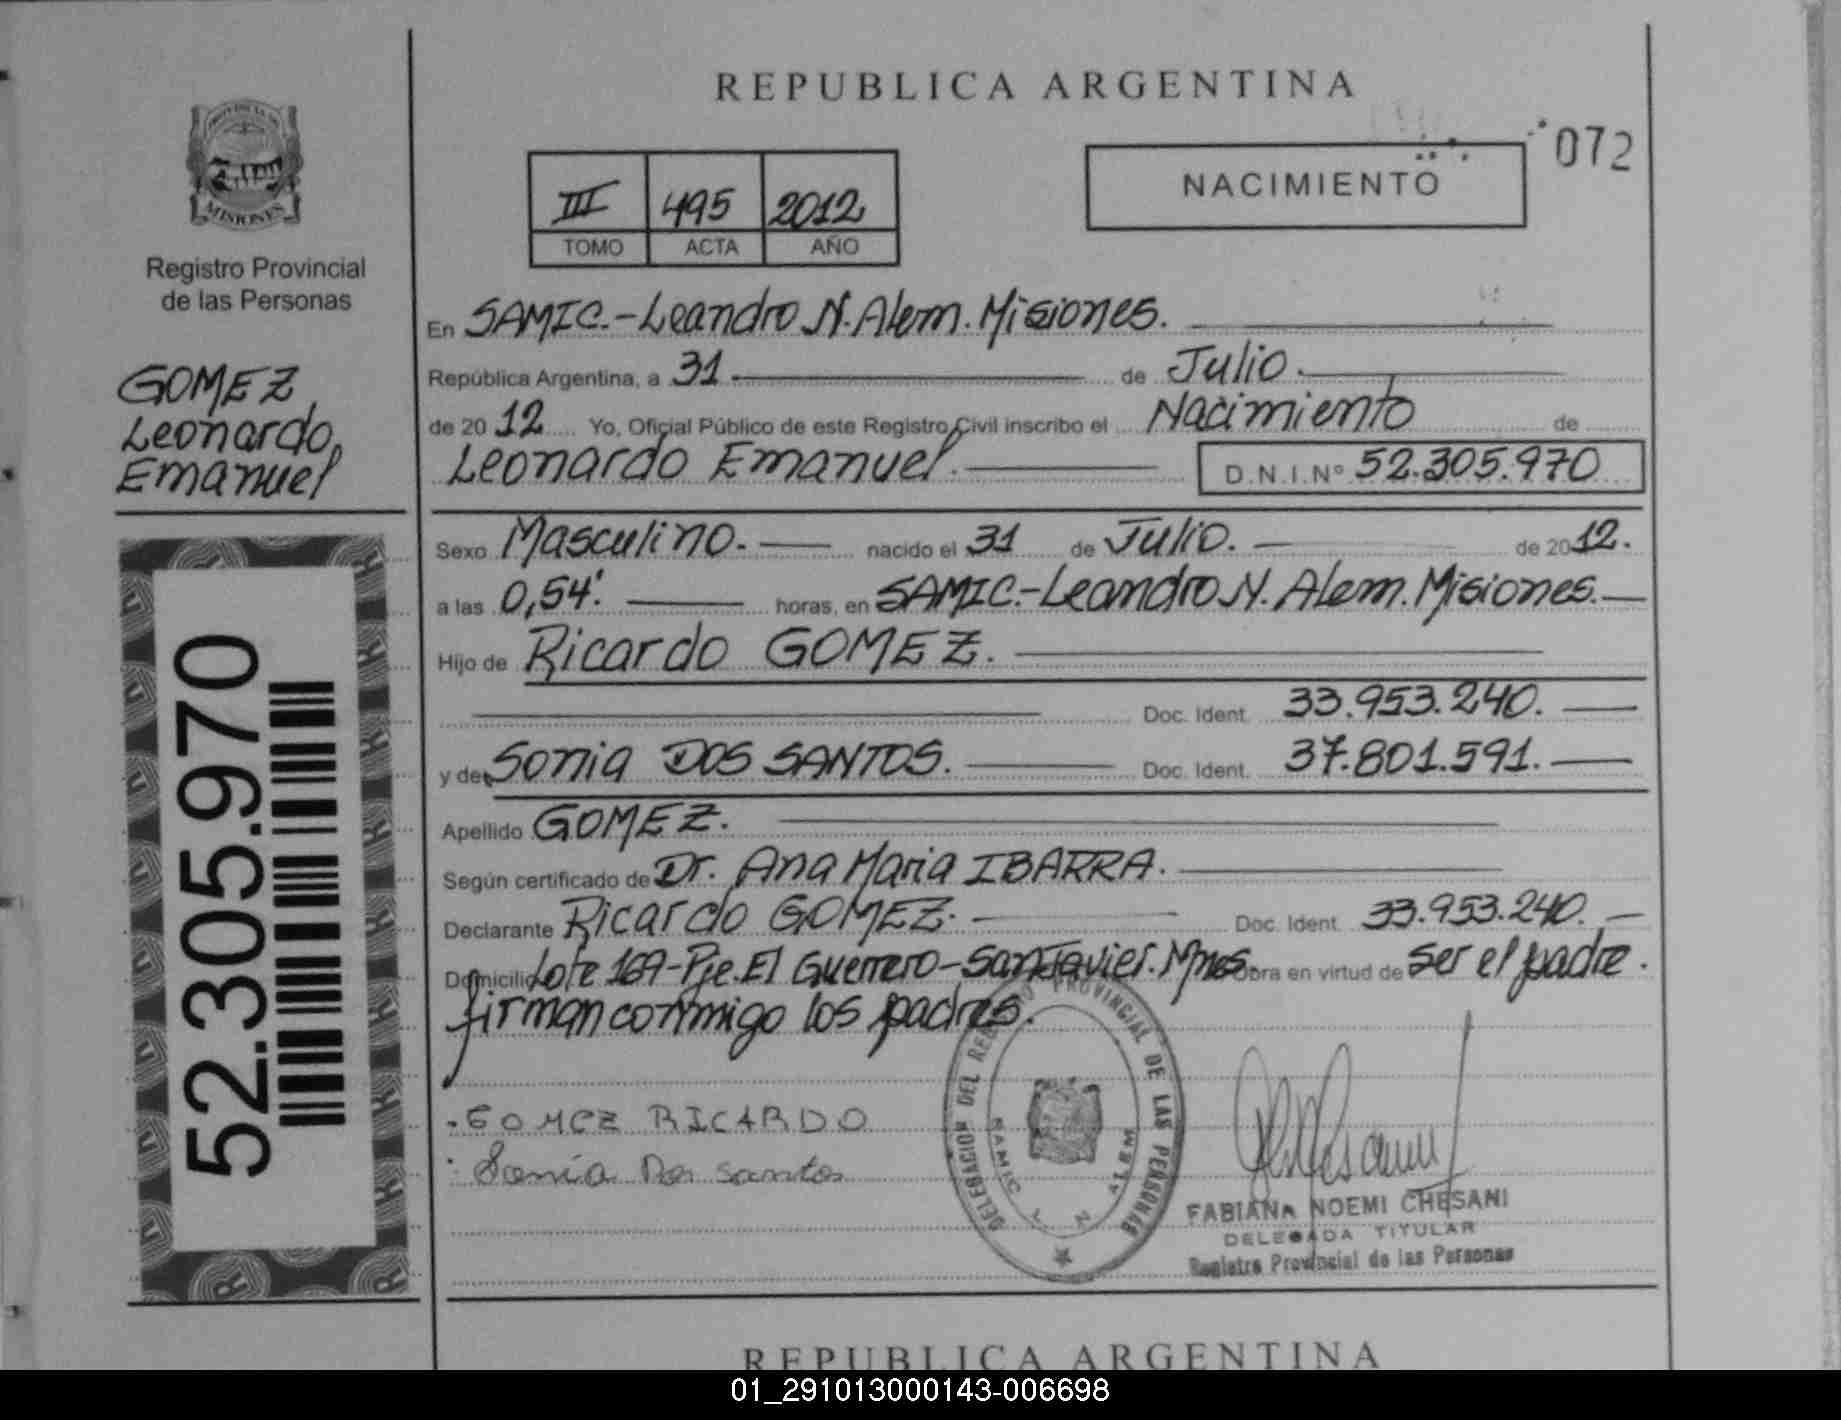 REPUBLICA ARGENTINA
072
NACIMIENTO
III 495 2012
TOMO ACTA AÑO
PROVINCIA DE
MISIONES
Registro Provincial
de las Personas
GOMEZ
Leonardo,
Emanuel
52.305.970
En SAMIC.-Leandro N. Alem. Misiones.
República Argentina, a 31 de Julio.
de 2012 Yo, Oficial Público de este Registro Civil inscribo el Nacimiento de
Leonardo Emanuel. D.N.I. Nº 52.305.970
Sexo Masculino. nacido el 31 de Julio. de 2012.
a las 0,54'. horas, en SAMIC.-Leandro N. Alem. Misiones.
Hijo de Ricardo GOMEZ.
Doc. Ident. 33.953.240.
y de Sonia DOS SANTOS. Doc. Ident. 37.801.591.
Apellido GOMEZ.
Según certificado de Dr. Ana Maria IBARRA.
Declarante Ricardo GOMEZ. Doc. Ident. 33.953.240.
Domicilio Lote 169-Pje. El Guerrero-San Javier. Mnes. Obra en virtud de ser el padre.
firman conmigo los padres.
GOMEZ RICARDO
Sonia Dos santos
DELEGACION DEL REGISTRO PROVINCIAL DE LAS PERSONAS
SAMIC L. N. ALEM
FABIANA NOEMI CHESANI
DELEGADA TITULAR
Registro Provincial de las Personas
REPUBLICA ARGENTINA
01_291013000143-006698